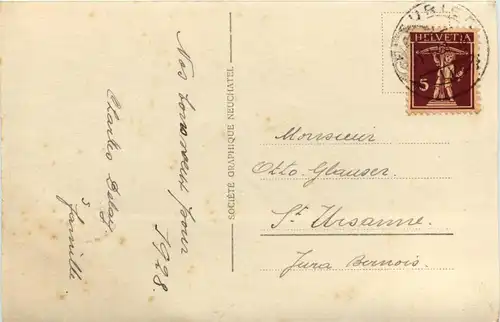 Nos bons voeux pour
1928
Charles
& famille
SOCIÉTÉ GRAPHIQUE NEUCHATEL
HELVETIA
5
Monsieur
Otto Glauser
St Ursanne
Jura Bernois.